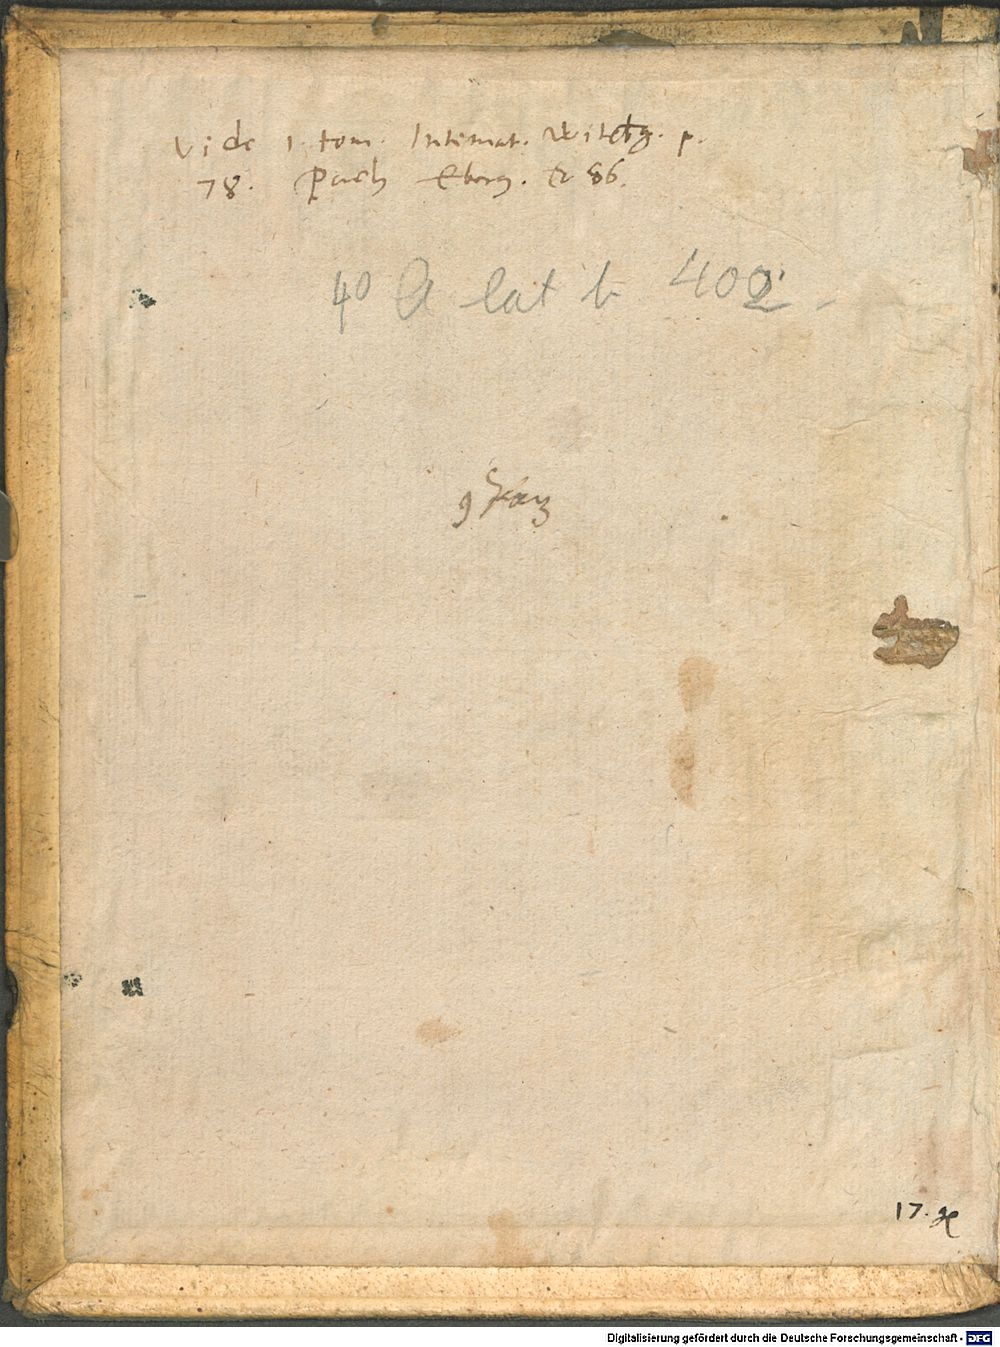 vide 1 tom. Intimat. Witebg. p.
78. Pauli Eberg. et 86.
4° A lat b 402
17.
Digitalisierung gefördert durch die Deutsche Forschungsgemeinschaft - DFG